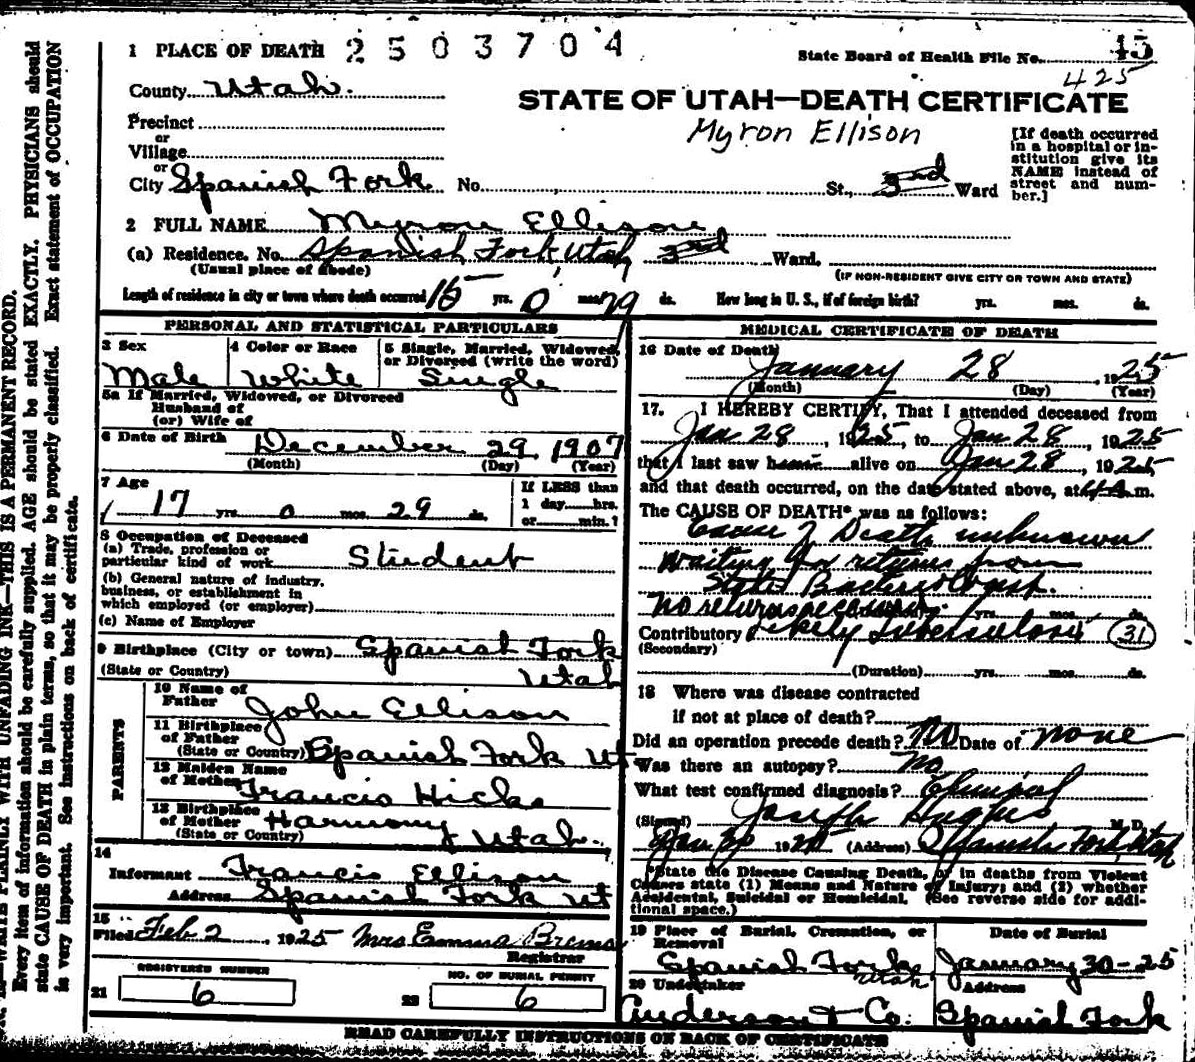 1 PLACE OF DEATH 2503704
State Board of Health File No. 45
425
County Utah.
STATE OF UTAH—DEATH CERTIFICATE
Myron Ellison
Precinct
or
Village
or
City Spanish Fork No. St., 3rd Ward
[If death occurred
in a hospital or in-
stitution give its
NAME instead of
street and num-
ber.]
2 FULL NAME Myron Ellison
(a) Residence. No. Spanish Fork, Utah, 3rd Ward.
(Usual place of abode)
(IF NON-RESIDENT GIVE CITY OR TOWN AND STATE)
Length of residence in city or town where death occurred yrs. 0 mos. 29 ds. How long in U. S., if of foreign birth? yrs. mos. ds.
PERSONAL AND STATISTICAL PARTICULARS
3 Sex
Male
4 Color or Race
White
5 Single, Married, Widowed,
or Divorced (write the word)
Single
5a If Married, Widowed, or Divorced
Husband of
(or) Wife of
6 Date of Birth December 29 1907
(Month) (Day) (Year)
7 Age
17 yrs. 0 mos. 29 ds.
If LESS than
1 day hrs.
or min.?
8 Occupation of Deceased
(a) Trade, profession or
particular kind of work Student
(b) General nature of industry,
business, or establishment in
which employed (or employer)
(c) Name of Employer
9 Birthplace (City or town) Spanish Fork
(State or Country) Utah
PARENTS
10 Name of
Father John Ellison
11 Birthplace
of Father
(State or Country) Spanish Fork Ut
12 Maiden Name
of Mother Francis Hicks
13 Birthplace
of Mother
(State or Country) Harmony Utah.
14
Informant Francis Ellison
Address Spanish Fork Ut
15
Filed Feb 2, 1925 Mrs Emma
Registrar
REGISTERED NUMBER
21 6
NO. OF BURIAL PERMIT
22 6
MEDICAL CERTIFICATE OF DEATH
16 Date of Death
January 28, 1925
(Month) (Day) (Year)
17. I HEREBY CERTIFY, That I attended deceased from
Jan 28, 1925, to Jan 28, 1925
that I last saw him alive on Jan 28, 1925
and that death occurred, on the date stated above, at m.
The CAUSE OF DEATH* was as follows:
Cause of Death unknown
Waiting for returns from
State Bacteriologist.
No returns yrs. mos. ds.
Contributory Likely Tuberculosis 31
(Secondary)
(Duration) yrs. mos. ds.
18 Where was disease contracted
if not at place of death?
Did an operation precede death? No Date of none
Was there an autopsy? No
What test confirmed diagnosis?
(Signed) Joseph Hughes M. D.
Jan 30 1925 (Address) Spanish Fork, Utah
*State the Disease Causing Death, or in deaths from Violent
Causes state (1) Means and Nature of Injury; and (2) whether
Accidental, Suicidal or Homicidal. (See reverse side for addi-
tional space.)
19 Place of Burial, Cremation, or
Removal
Spanish Fork
Utah
Date of Burial
January 30-25
20 Undertaker
Anderson & Co.
Address
Spanish Fork
READ CAREFULLY INSTRUCTIONS ON BACK OF CERTIFICATE
WRITE PLAINLY WITH UNFADING INK—THIS IS A PERMANENT RECORD.
Every item of information should be carefully supplied. AGE should be stated EXACTLY. PHYSICIANS should
state CAUSE OF DEATH in plain terms, so that it may be properly classified. Exact statement of OCCUPATION
is very important. See instructions on back of certificate.